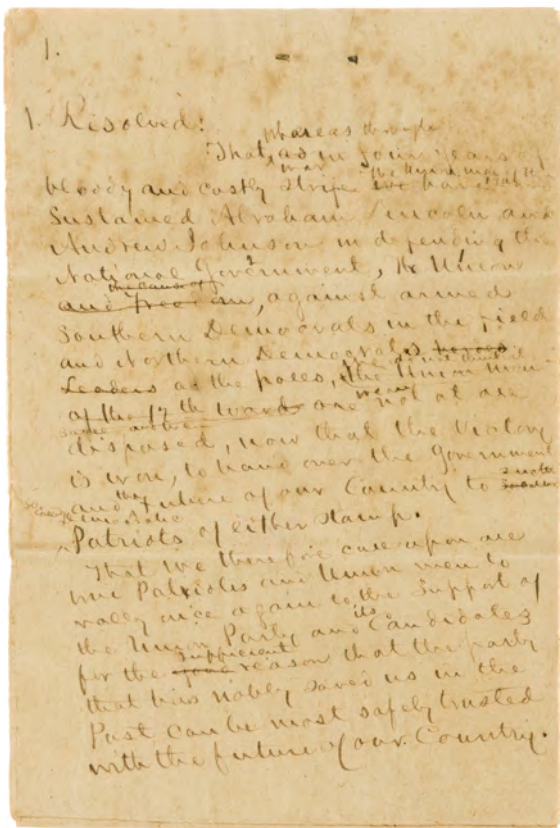 1.
1. Resolved:
whereas through
That, as in four years of
war the Union men of the
bloody and costly strife we have
Sustained Abraham Lincoln and
Andrew Johnson in defending the
National Government, the Union
the cause of
and freedom, against armed
Southern Democrats in the field
and Northern Democrats
Leaders at the polls, the Union men
of the 17th Ward are not at all
disposed, now that the Victory
is won, to hand over the Government
and the future of our Country to such
Patriots of either stamp.
That we therefore call upon all
true Patriots and Union men to
rally once again to the Support of
the Union Party and its Candidates
sufficient
for the good reason that the party
that has nobly saved us in the
Past can be most safely trusted
with the future of our Country.